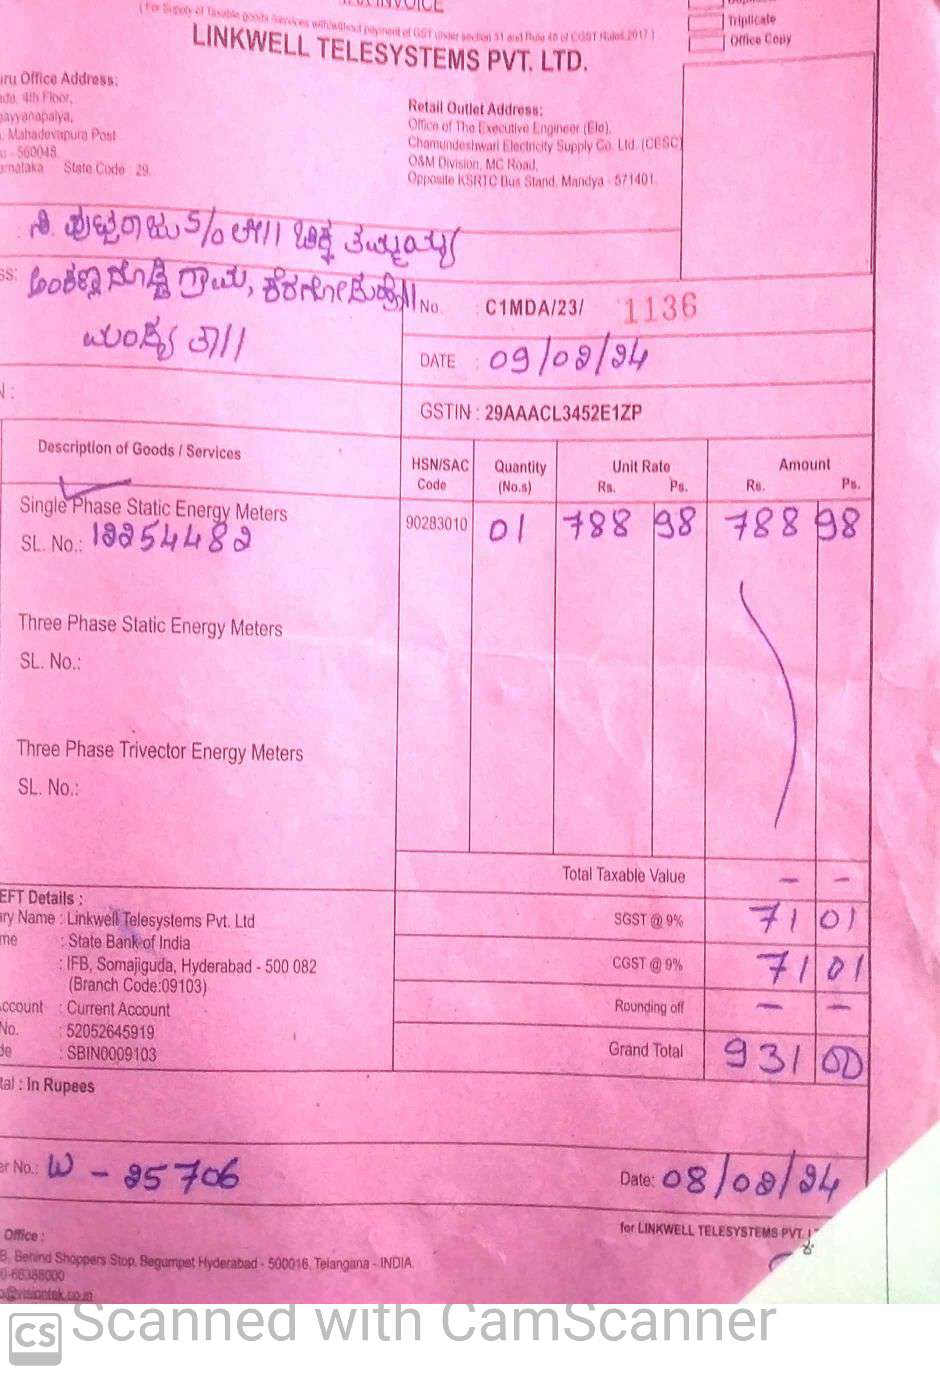 INVOICE
( For Supply of Taxable goods /services with/without payment of GST under section 31 and Rule 46 of CGST Rules 2017 )
LINKWELL TELESYSTEMS PVT. LTD.
Triplicate
Office Copy
Office Address:
4th Floor,
Mahadevapura Post
- 560048.
State Code 29.
Retail Outlet Address:
Office of The Executive Engineer (Ele),
Chamundeshwari Electricity Supply Co. Ltd. (CESC)
O&M Division, MC Road,
Opposite KSRTC Bus Stand, Mandya - 571401.
S/o
No. : C1MDA/23/ 1136
ಮಂಡ್ಯ ತಾ//
DATE : 09/02/24
GSTIN : 29AAACL3452E1ZP
Description of Goods / Services HSN/SAC Code Quantity (No.s) Unit Rate Rs. Ps. Amount Rs. Ps.
Single Phase Static Energy Meters 90283010 01 788 98 788 98
SL. No.: 12254482
Three Phase Static Energy Meters
SL. No.:
Three Phase Trivector Energy Meters
SL. No.:
Total Taxable Value - -
EFT Details :
Name : Linkwell Telesystems Pvt. Ltd SGST @ 9% 71 01
: State Bank of India
: IFB, Somajiguda, Hyderabad - 500 082 CGST @ 9% 71 01
(Branch Code:09103)
: Current Account Rounding off - -
No. : 52052645919
: SBIN0009103 Grand Total 931 00
: In Rupees
No.: W - 25706 Date: 08/02/24
Office : for LINKWELL TELESYSTEMS PVT.
Behind Shoppers Stop, Begumpet Hyderabad - 500016, Telangana - INDIA
-66388000
CS Scanned with CamScanner